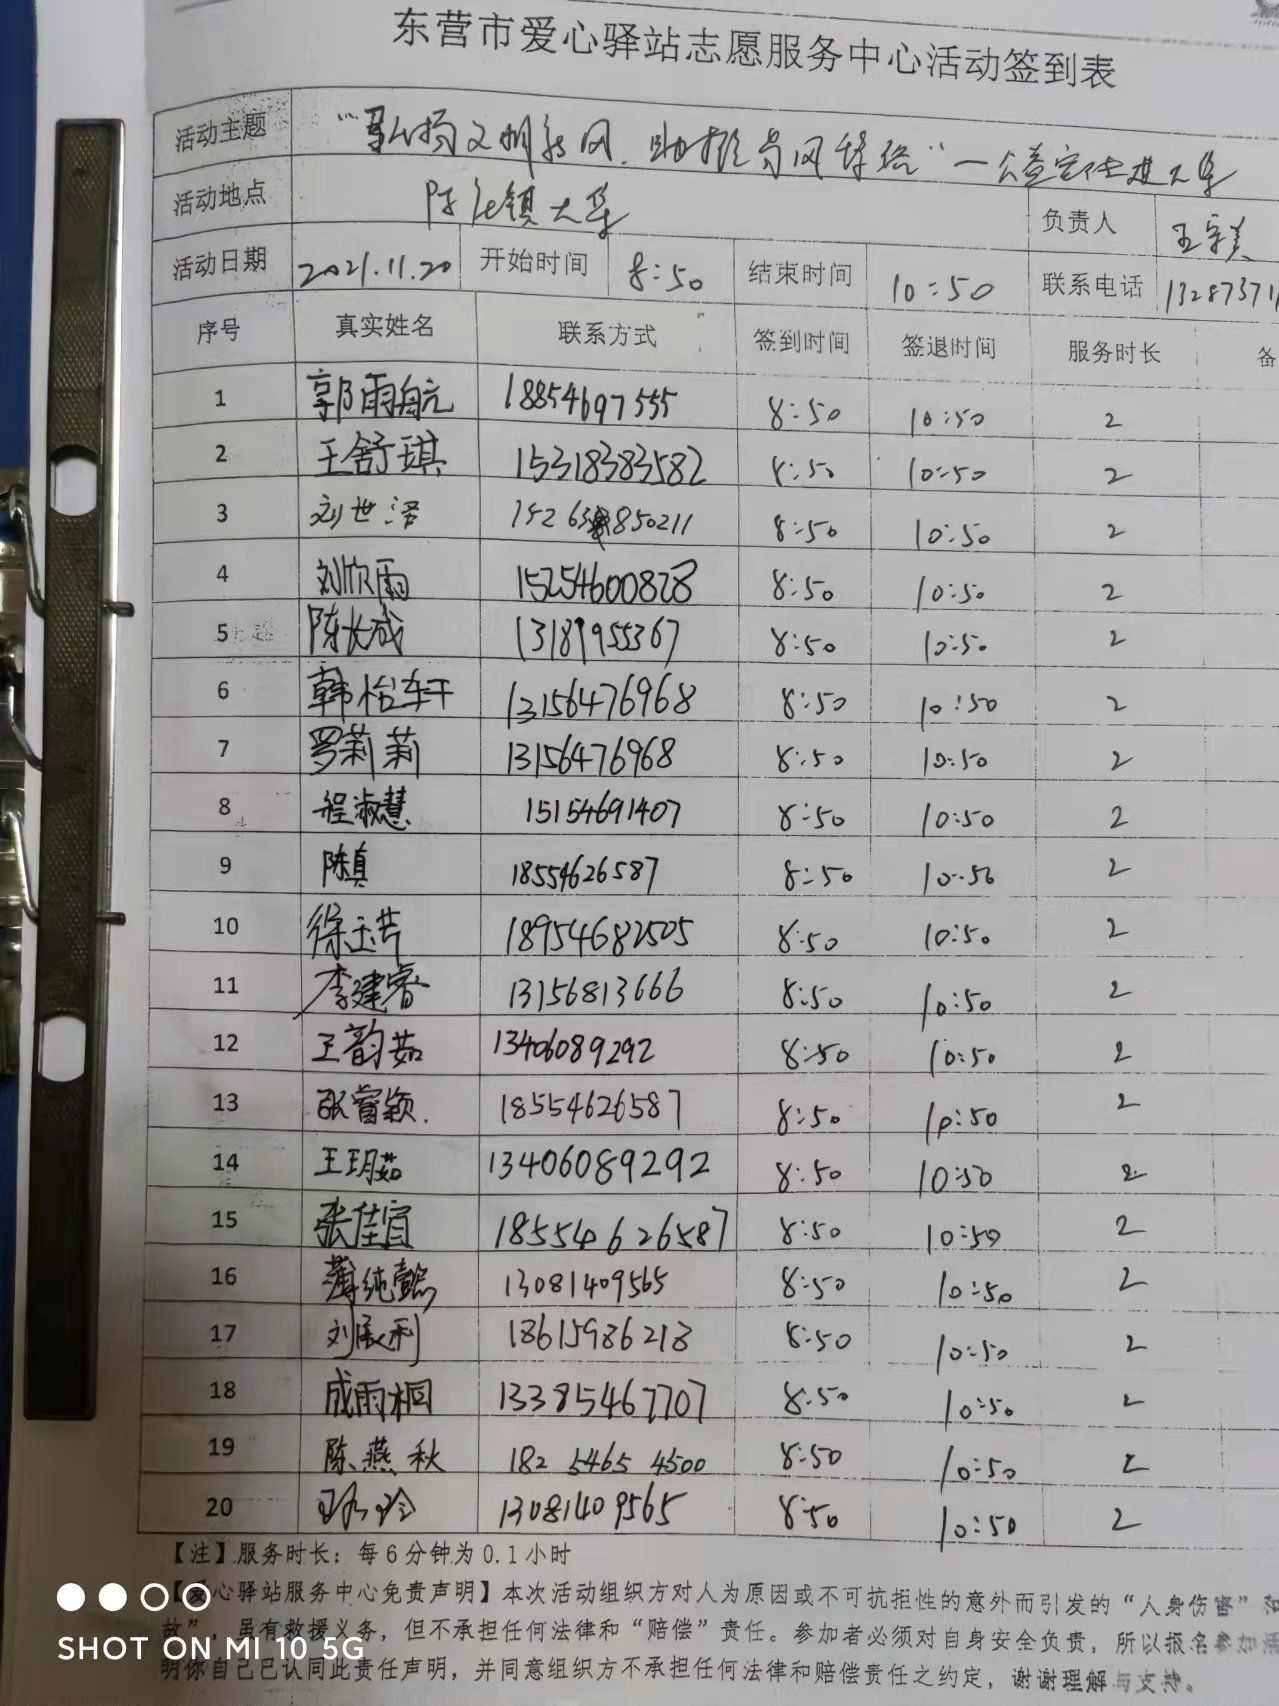 东营市爱心驿站志愿服务中心活动签到表
活动主题 “弘扬文明新风、助推易风移俗”一公益宣传进大集
活动地点 陈庄镇大集 负责人
活动日期 2021.11.20 开始时间 8:50 结束时间 10:50 联系电话 1328737
序号 真实姓名 联系方式 签到时间 签退时间 服务时长 备
1 郭雨航 18854697555 8:50 10:50 2
2 王舒琪 15318383582 8:50 10:50 2
3 刘世泽 8:50 10:50 2
4 刘欣雨 15254600828 8:50 10:50 2
5 陈长成 13189955367 8:50 10:50 2
6 韩怡轩 13156476968 8:50 10:50 2
7 罗莉莉 13156476968 8:50 10:50 2
8 程淑慧 15154691407 8:50 10:50 2
9 陈真 18554626587 8:50 10:50 2
10 徐玉芹 18954682505 8:50 10:50 2
11 李建睿 13156813666 8:50 10:50 2
12 王韵茹 13406089292 8:50 10:50 2
13 张睿颖. 18554626587 8:50 10:50 2
14 王玥茹 13406089292 8:50 10:50 2
15 张佳宜 18554626587 8:50 10:50 2
16 薄纯懿 13081409565 8:50 10:50 2
17 18615986213 8:50 10:50 2
18 成雨桐 13385467707 8:50 10:50 2
19 陈燕秋 182 5465 4500 8:50 10:50 2
20 13081409565 8:50 10:50 2
【注】服务时长：每6分钟为0.1小时
【爱心驿站服务中心免责声明】本次活动组织方对人为原因或不可抗拒性的意外而引发的“人身伤害”和
故”，虽有救援义务，但不承担任何法律和“赔偿”责任。参加者必须对自身安全负责，所以报名参加活
明你自己已认同此责任声明，并同意组织方不承担任何法律和赔偿责任之约定，谢谢理解与支持。
SHOT ON MI 10 5G